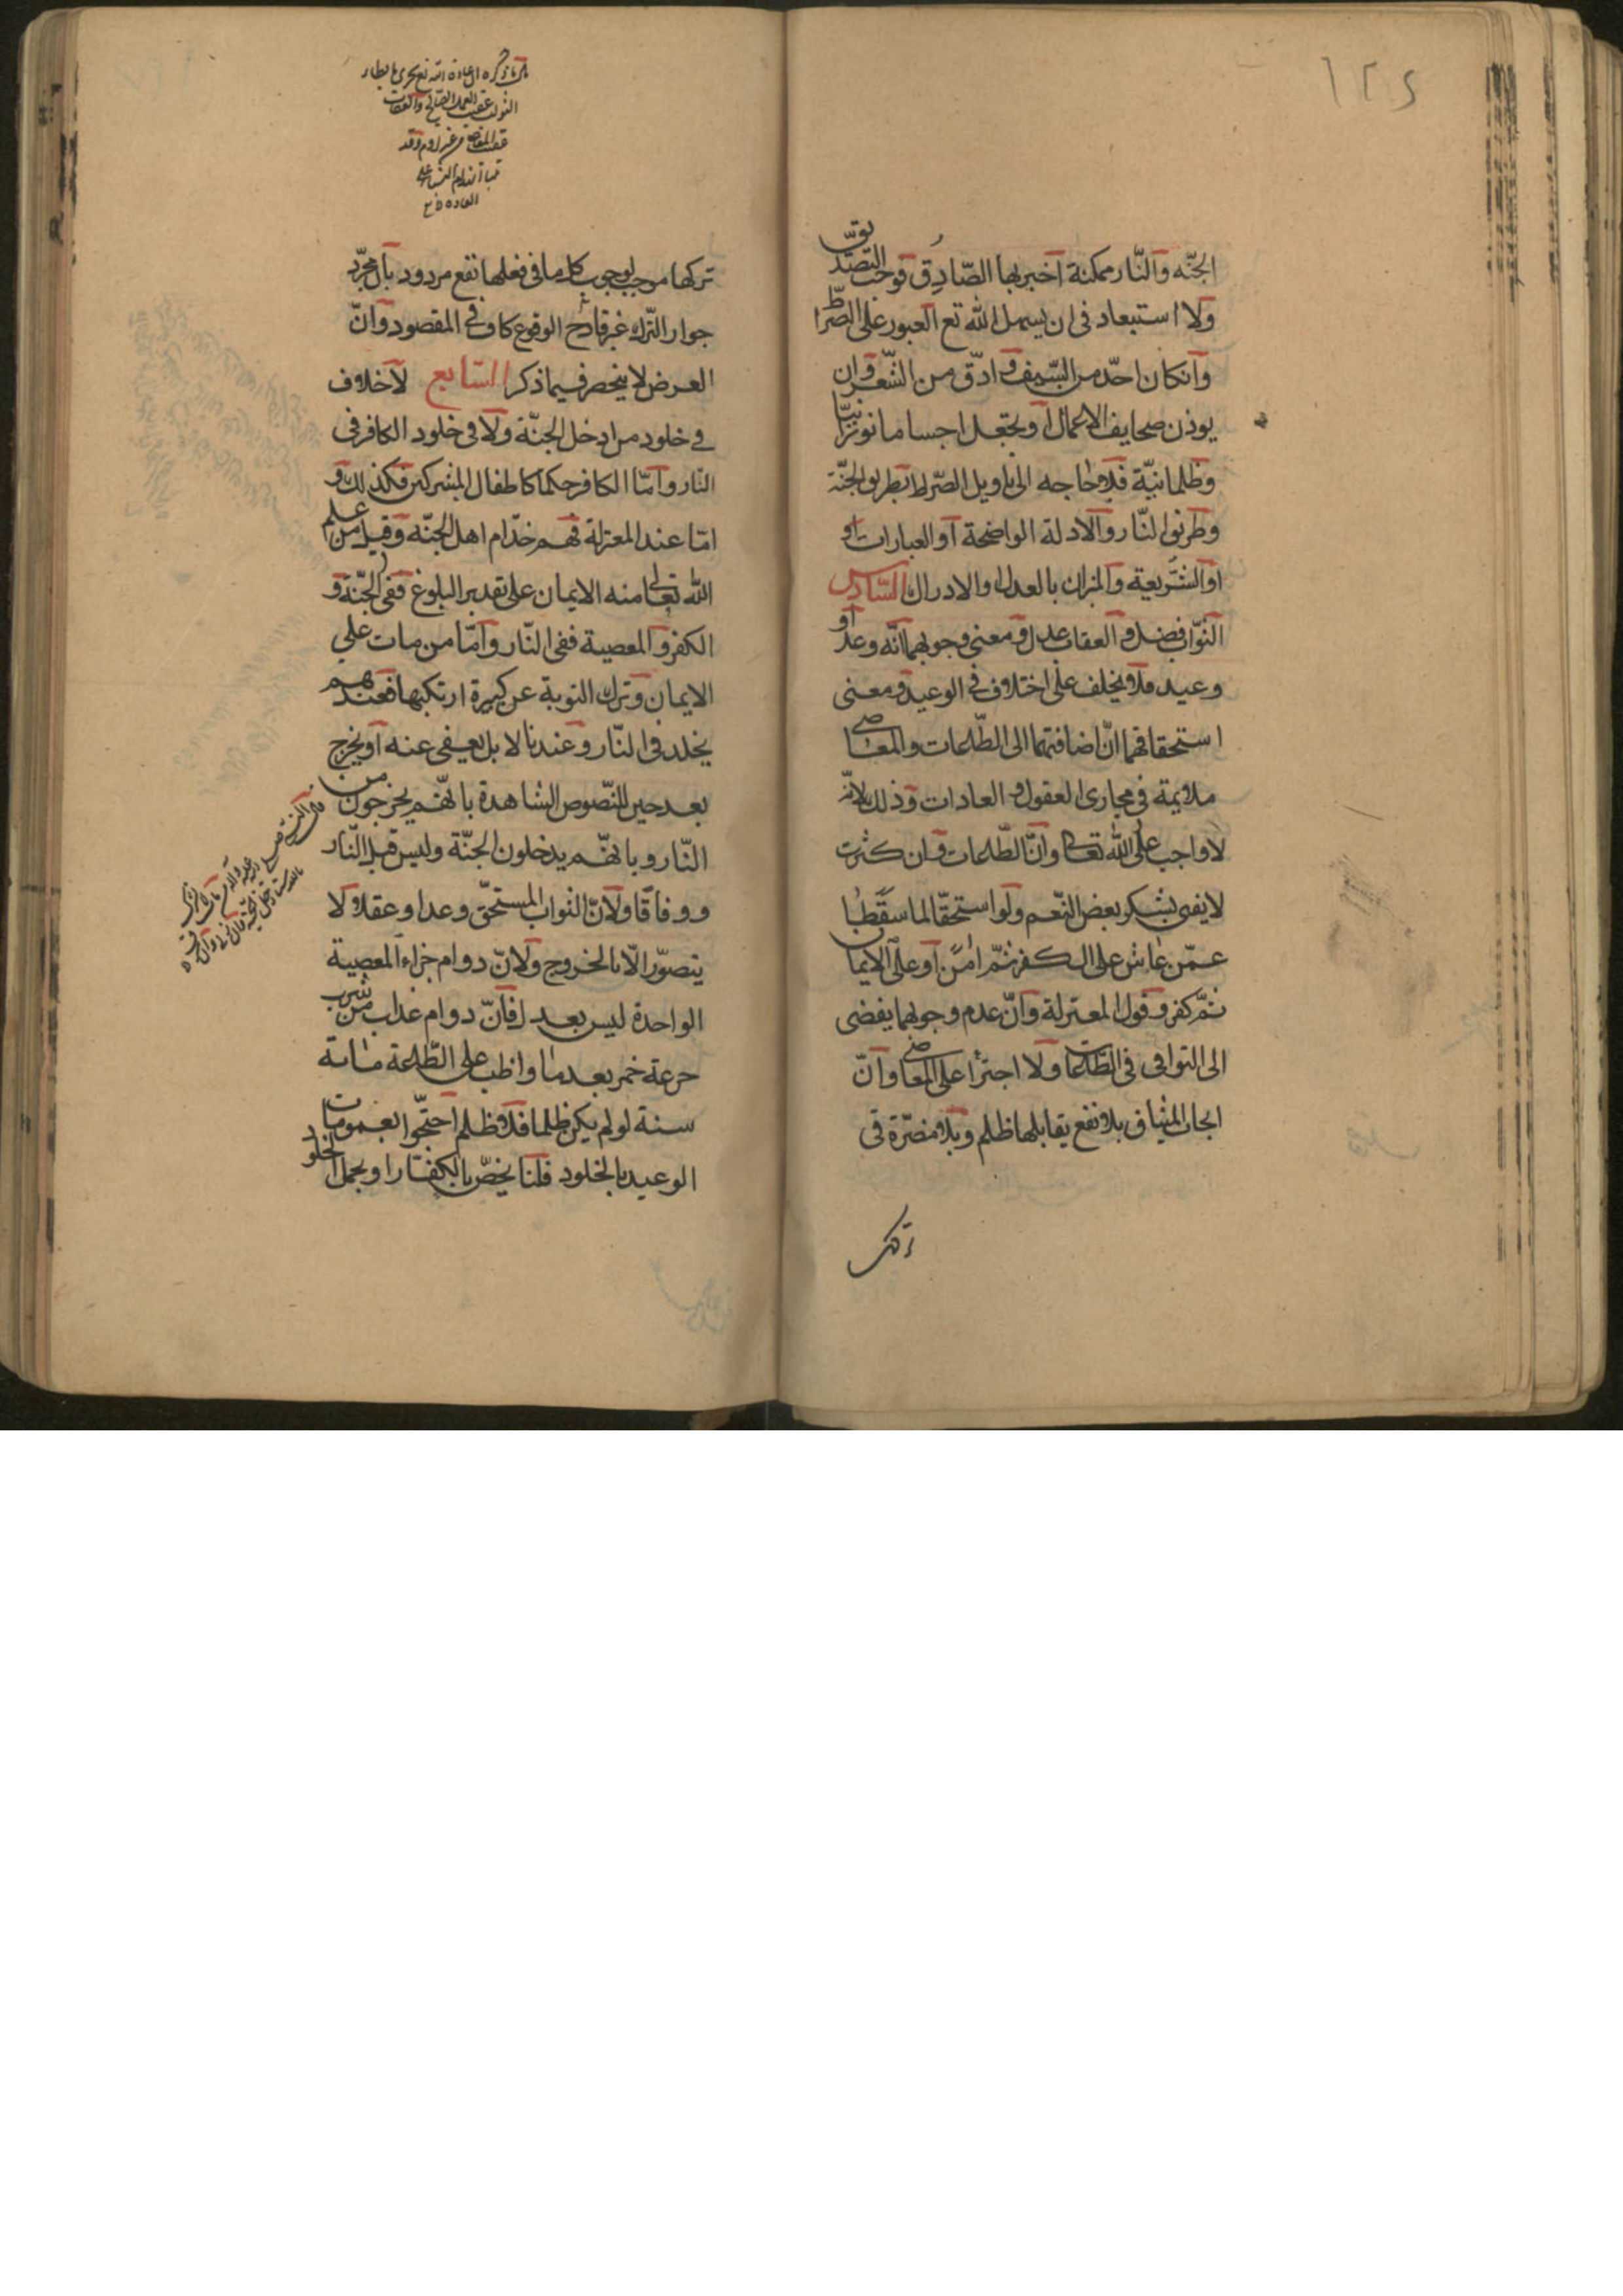 ١٢٤
الجنّه والنّار ممكنة اخبر بها الصّادق فوجب التصديق
ولا استبعاد فى ان يسهل الله تع العبور على الصّراط
وانكان احدّ من السّيف وادّق من الشّعر وان
يوذن صحايف الاعمال او تجعل اجساما نورانيّة
وظلمانيّة فلا حاجه الى تاويل الصّراط بطريق الجنّة
وطريق النّار والادلة الواضحة او العبارات او
او الشّريعة والميزان بالعدل والادراك السّادس
الثوّاب فضل والعقاب عدل ومعنى وجوبهما انّه وعد او
وعيد فلا يخلف على اختلاف فى الوعيد ومعنى
استحقاقهما انّ اضافتهما الى الطّاعات والمعاصى
ملايمة فى مجارى العقول والعادات وذلك لانّه
لا واجب على الله تعالى وانّ الطّاعات وان كثرت
لا يفى بشكر بعض النّعم ولو استحقّا لما سقطا
عمّن عاش على الكفر ثمّ امن او على الايمان
ثمّ كفر وقول المعتزلة وانّ عدم وجوبهما يفضى
الى التوانى فى الطّاعات ولا اجترأ على المعاصى وانّ
ايجاب المشاق بلا نفع يقابلها ظلم وبلا مضرّة فى
تركها
تركها موجب لوجوب كل ما فى فعلها نفع مردود بان مجرّد
جواز التّرك غير قادح الوقوع كاف فى المقصود وانّ
الغرض لا ينحصر فيما ذكر السّابع لا خلاف
فى خلود من ادخل الجنّة ولا فى خلود الكافر فى
النّار وامّا الكافر حكما كاطفال المشركين فكذلك و
امّا عند المعتزلة فهم خدّام اهل الجنّه وقيل من علم
الله تعالى منه الايمان على تقدير البلوغ ففى الجنّة و
الكفر والمعصية ففى النّار وامّا من مات على
الايمان وترك التوبة عن كبيرة ارتكبها فعندهم
يخلد فى النّار وعندنا لا بل يعفى عنه او يخرج
بعد حين للنّصوص الشاهدة بانّهم يخرجون من
النّار وبانّهم يدخلون الجنّة وليس قبل النّار
ووفاقا ولانّ الثواب المستحقّ وعدا وعقلا لا
يتصوّر الّا بالخروج ولانّ دوام جزاء المعصية
الواحدة ليس بعدل فانّ دوام عذاب من شرب
جرعة خمر بعد ما واظب على الطّاعة مائة
سنة لو لم يكن ظلما فلا ظلم احتجّوا بعمومات
الوعيد بالخلود قلنا يخصّ بالكفّار او يحمل الخلود